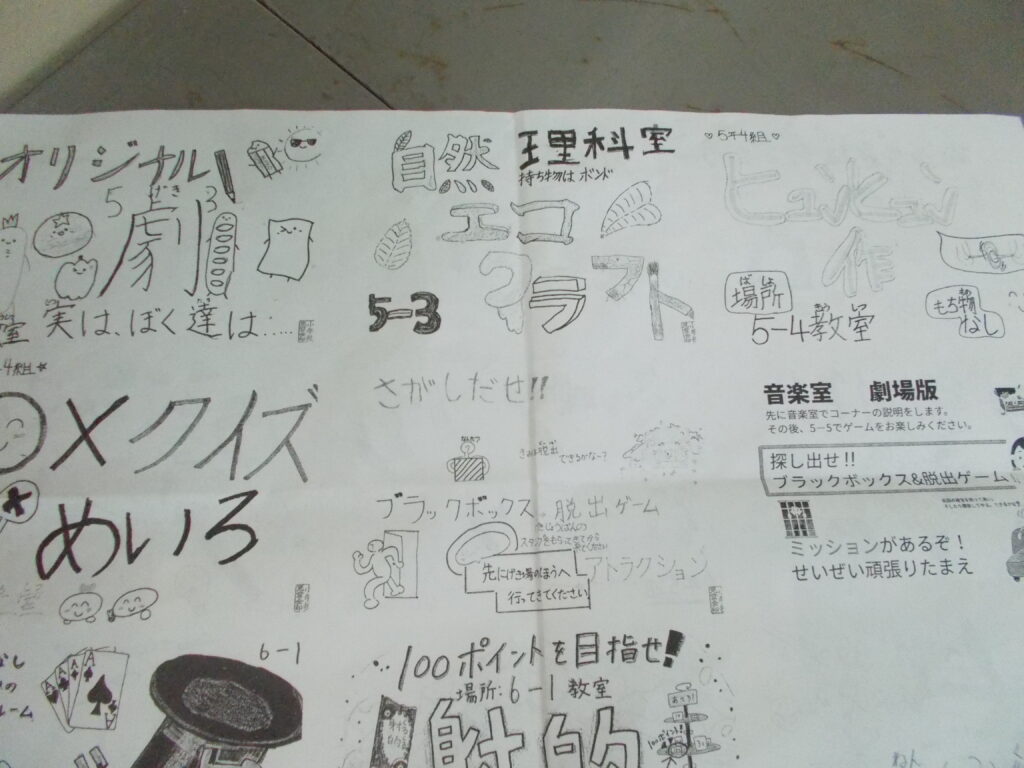 オリジナル
5 げき 3
劇
実は、ぼく達は.....
自然
理科室
持ち物は ボンド
エコ
クラフト
5-3
♡5年4組♡
ヒュンヒュン
作
場所
5-4教室
もち物
なし
4組★
○×クイズ
めいろ
さがしだせ!!
なんだ?
きみは脱出
できるかな~?
ブラックボックス。脱出ゲーム
アトラクション
先にげき場のほうへ
行ってきてください
音楽室 劇場版
先に音楽室でコーナーの説明をします。
その後、5-5でゲームをお楽しみください。
探し出せ!!
ブラックボックス&脱出ゲーム
ミッションがあるぞ!
せいぜい頑張りたまえ
6-1
100ポイントを目指せ!
場所:6-1教室
射的